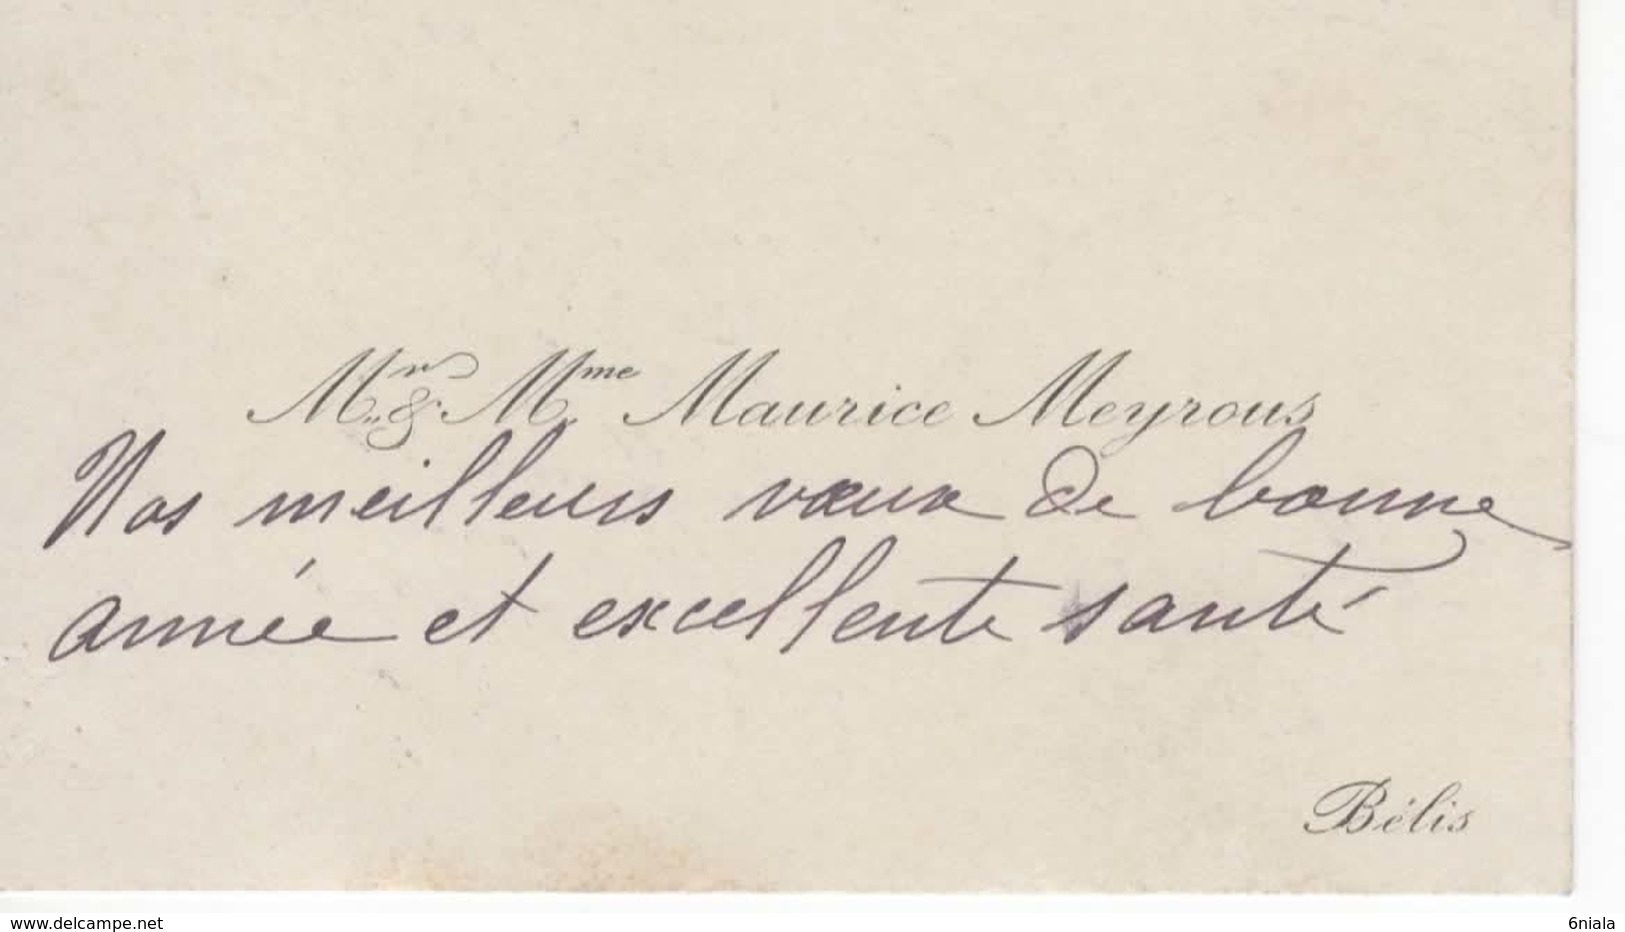 Mr & Mme Maurice Meyrous
Nos meilleurs vœux de bonne
année et excellente santé
Bélis
www.delcampe.net
6niala